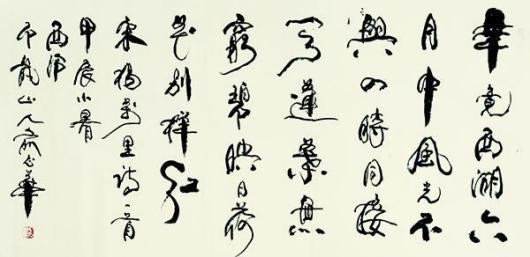 畢竟西湖六
月中風光不
與四時同接
天蓮葉無
窮碧映日荷
花別樣紅
宋楊萬里詩一首
甲辰小暑
西泠
龍山人俞建華